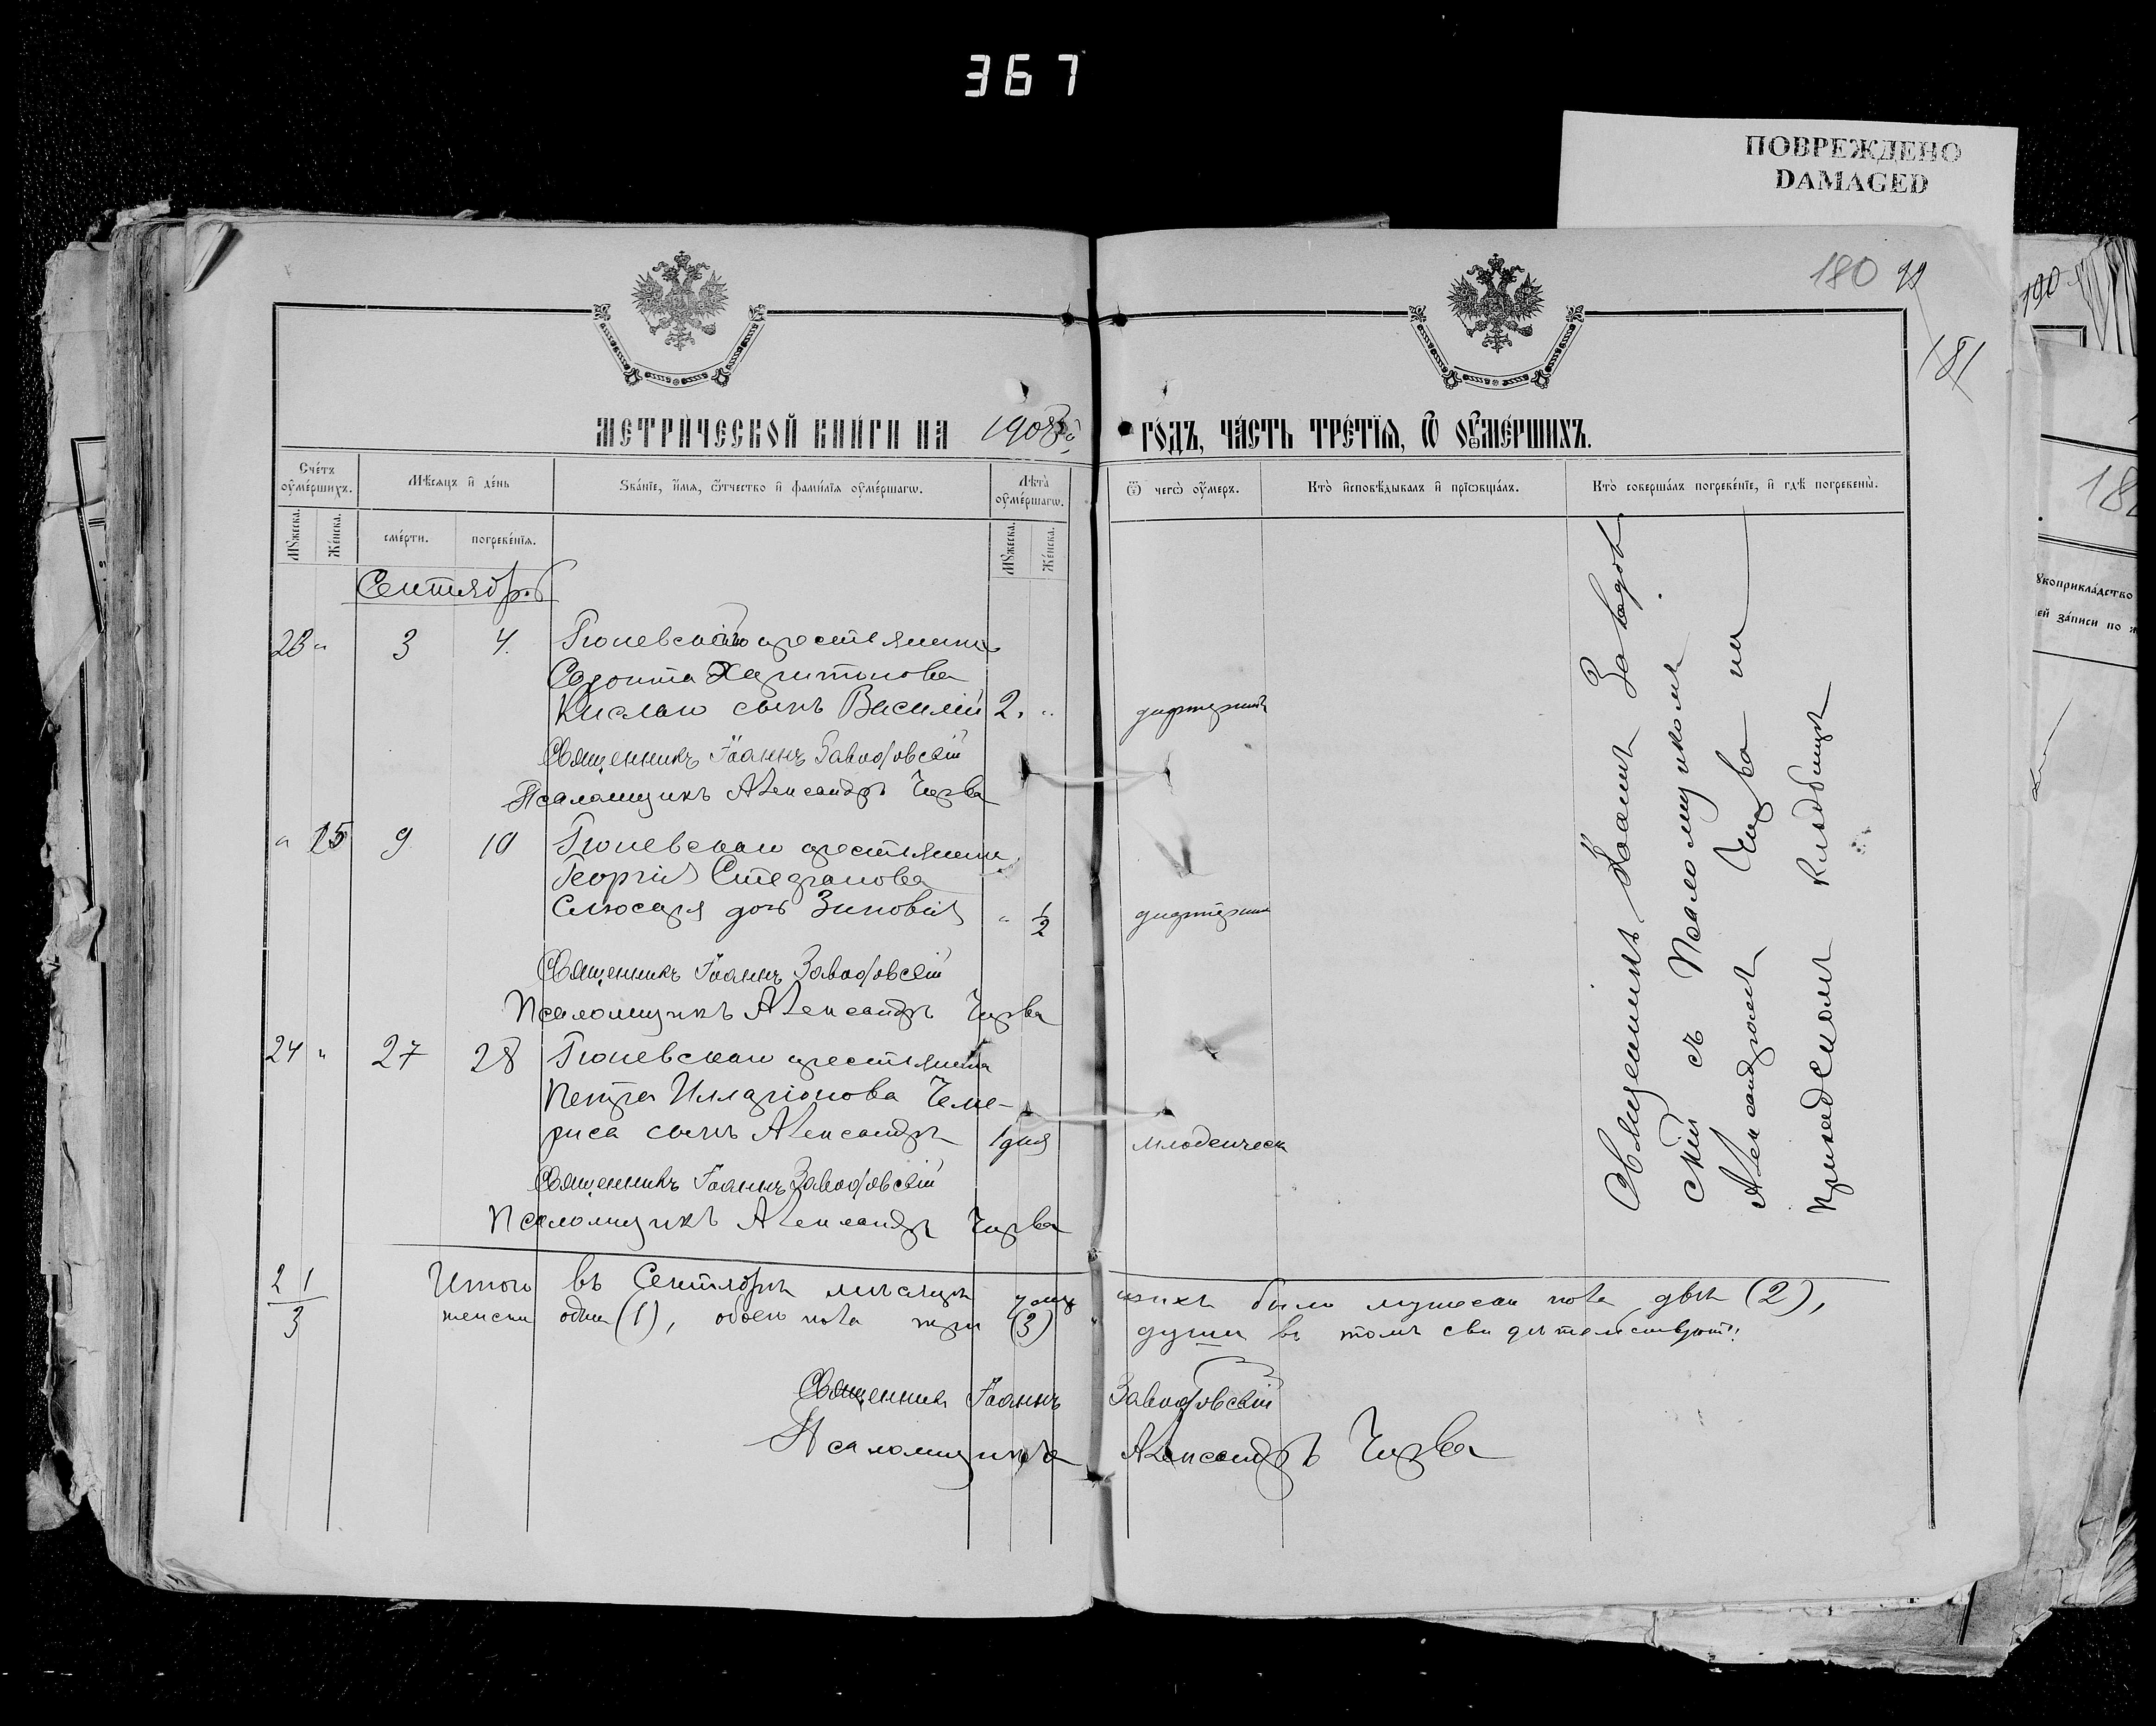 367
ПОВРЕЖДЕНО
DAMAGED
180 99
181
190
МЕТРИЧЕСКОЙ КНИГИ НА 1908й ГОДЪ, ЧАСТЬ ТРЕТІЯ, Ѿ ОУМЕРШИХЪ.
Счетъ оумершихъ.
Мѣсяцъ и день
Званіе, имя, отчество и фамилія оумершагѡ.
Лѣта оумершагѡ.
Ѿ чегѡ оумеръ.
Кто исповѣдывалъ и пріѡбщалъ.
Кто совершалъ погребеніе, и гдѣ погребены.
Мужеска.
Женска.
смерти.
погребенія.
Мужеска.
Женска.
Сентябрь
23 " 3 4. крестьянина
Харитонова
Кислаго сынъ Василій 2. " дифтеритъ
Священникъ Іоаннъ Заводовскій
Псаломщикъ Александръ Чирва
" 15 9 10 крестьянина
Георгія Стефанова
Слюсаря дочь Зиновія " 1/2 дифтеритъ
Священникъ Іоаннъ Заводовскій
Псаломщикъ Александръ Чирва
24 " 27 28 крестьянина
Петра Илларіонова Чеме-
риса сынъ Александръ 1 дня младенческ
Священникъ Іоаннъ Заводовскій
Псаломщикъ Александръ Чирва
Священникъ Іоаннъ Заводов
скій съ Псаломщикомъ
Александромъ Чирва на
приходскомъ кладбищѣ
2 1
3
Итого въ Сентябрѣ мѣсяцѣ умершихъ было мужеска пола двѣ (2),
женска одна (1), обоего пола три (3) души въ томъ свидѣтельствуютъ:
Священникъ Іоаннъ Заводовскій
Псаломщикъ Александръ Чирва
рукоприкладство